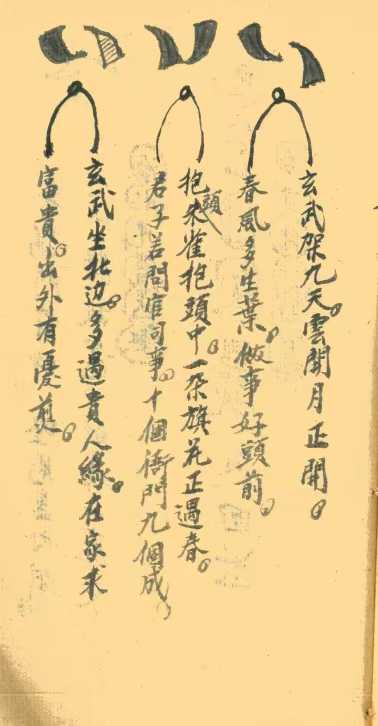 玄武架九天雲開月正開
春風多生葉做事好頭前
抱頭朱雀抱頭中一朶旗花正過春
君子若問官司事十個衙門九個成
玄武坐北边多過貴人緣在家求
富貴出外有憂煎